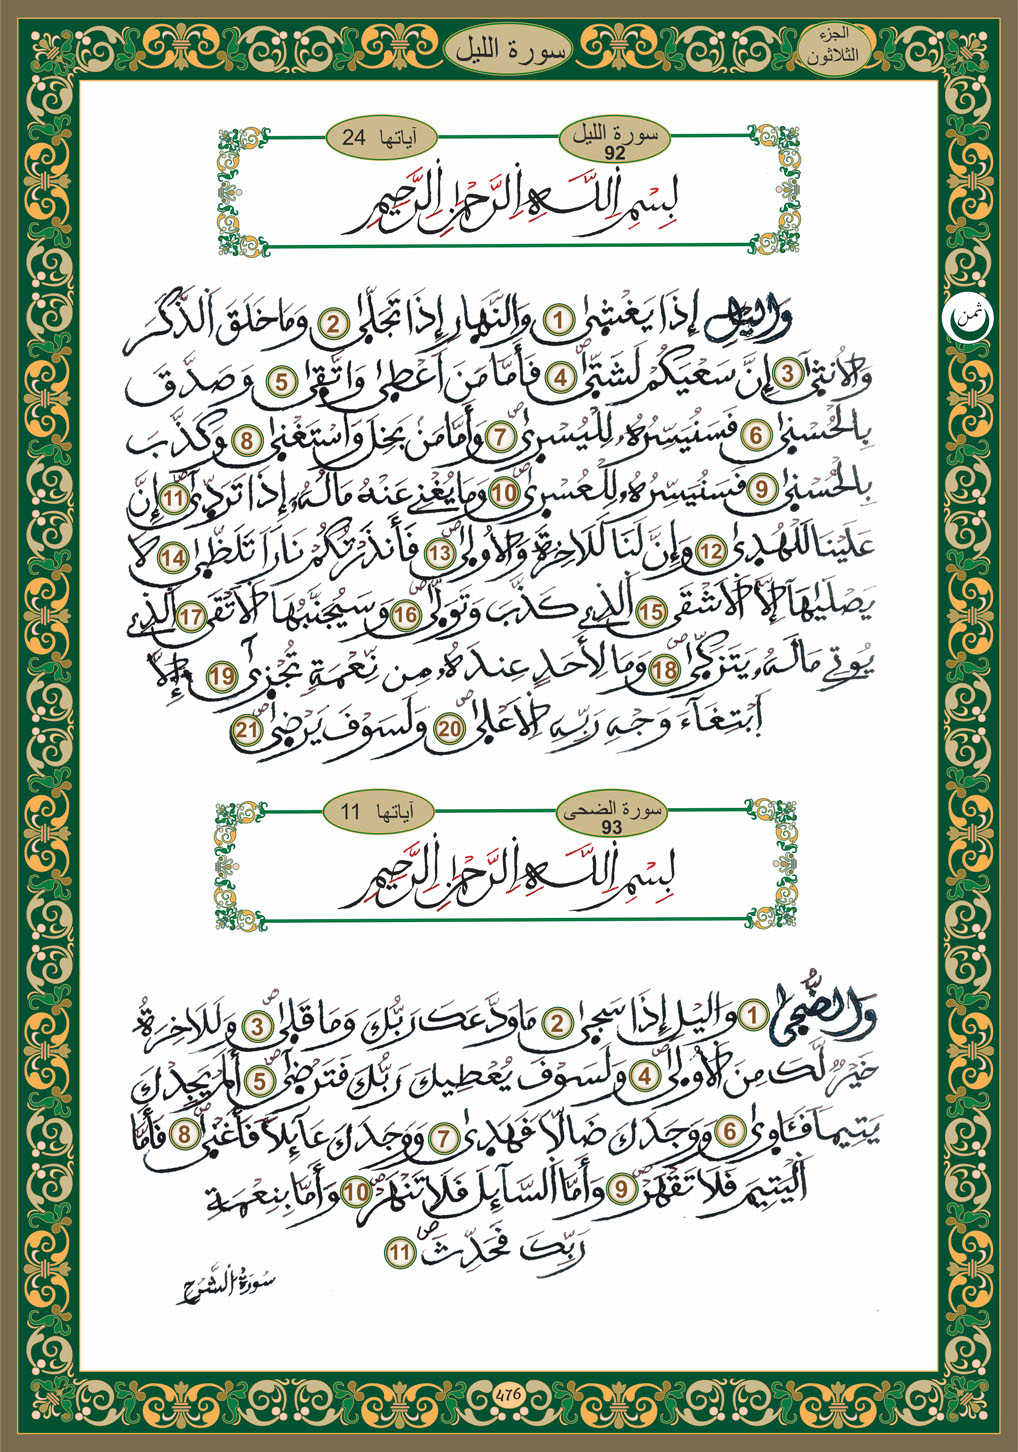 سورة الليل
الجزء
الثلاثون
سورة الليل
92
آياتها 24
بِسْمِ اِ۬للَّهِ اِ۬لرَّحْمَٰنِ اِ۬لرَّحِيمِ
ثمن
وَاليْلِ إِذَا يَغْشِىٰ 1 وَالنَّهِارِ إِذَا تَجَلِّىٰ 2 وَمَا خَلَقَ اَ۬لذَّكَرَ
وَالُانث۪ىٰٓ 3 إِنَّ سَعْيَكُمْ لَشَتّ۪ىٰ 4 فَأَمَّا مَنَ اَعْط۪ىٰ وَاتَّق۪ىٰ 5 وَصَدَّقَ
بِالْحُسْن۪ىٰ 6 فَسَنُيَسِّرُهُۥ لِلْيُسْر۪ىٰ 7 وَأَمَّا مَنۢ بَخِلَ وَاسْتَغْن۪ىٰ 8 وَكَذَّبَ
بِالْحُسْن۪ىٰ 9 فَسَنُيَسِّرُهُۥ لِلْعُسْر۪ىٰ 10 وَمَا يُغْنِے عَنْهُ مَالُهُۥٓ إِذَا تَرَدّ۪ىٰٓ 11 إِنَّ
عَلَيْنَا لَلْهُد۪ىٰ 12 وَإِنَّ لَنَا لَلَاخِرَةَ وَالُاول۪ىٰ 13 فَأَنذَرْتُكُمْ نَاراٗ تَلَظّ۪ىٰ 14 لَا
يَصْلَيٰهَآ إِلَّا اَ۬لَاشْقَى 15 اَ۬لذِے كَذَّبَ وَتَوَلّ۪ىٰ 16 وَسَيُجَنَّبُهَا اَ۬لَاتْقَى 17 اَ۬لذِے
يُوتِے مَالَهُۥ يَتَزَكّ۪ىٰ 18 وَمَا لِأَحَدٍ عِندَهُۥ مِن نِّعْمَةٖ تُجْز۪ىٰٓ 19 إِلَّا
اَ۪بْتِغَآءَ وَجْهِ رَبِّهِ اِ۬لَاعْل۪ىٰ 20 وَلَسَوْفَ يَرْض۪ىٰ 21
سورة الضحى
93
آياتها 11
بِسْمِ اِ۬للَّهِ اِ۬لرَّحْمَٰنِ اِ۬لرَّحِيمِ
وَالضُّح۪ىٰ 1 وَاليْلِ إِذَا سَج۪ىٰ 2 مَا وَدَّعَكَ رَبُّكَ وَمَا قَل۪ىٰ 3 وَلَلَاخِرَةُ
خَيْرٞ لَّكَ مِنَ اَ۬لُاول۪ىٰ 4 وَلَسَوْفَ يُعْطِيكَ رَبُّكَ فَتَرْض۪ىٰٓ 5 أَلَمْ يَجِدْكَ
يَتِيماٗ فَـَٔاو۪ىٰ 6 وَوَجَدَكَ ضَآلّاٗ فَهَد۪ىٰ 7 وَوَجَدَكَ عَآئِلاٗ فَأَغْن۪ىٰ 8 فَأَمَّا
اَ۬لْيَتِيمَ فَلَا تَقْهَرْ 9 وَأَمَّا اَ۬لسَّآئِلَ فَلَا تَنْهَرْ 10 وَأَمَّا بِنِعْمَةِ
رَبِّكَ فَحَدِّثْ 11
سُورَةُ الشَّرْحِ
476